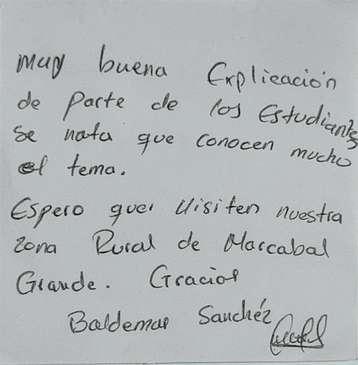 muy buena Explicación
de parte de los Estudiantes
se nota que conocen mucho
el tema.
Espero que Visiten nuestra
zona Rural de Marcabal
Grande. Gracias
Baldemar Sanchéz